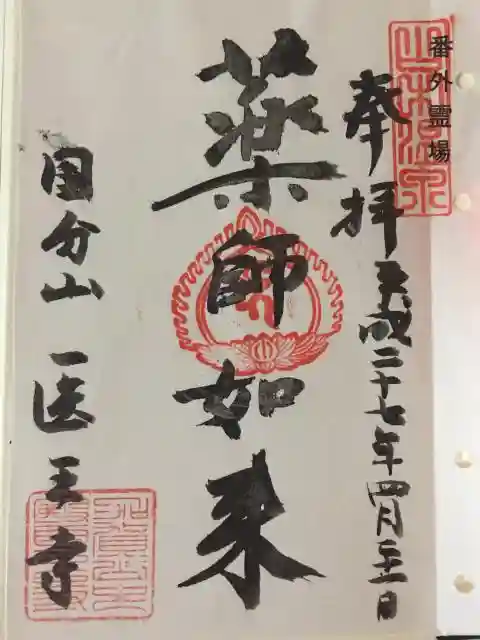 番外霊場
奉拝
平成二十七年四月二十一日
薬師如来
国分山
医王寺